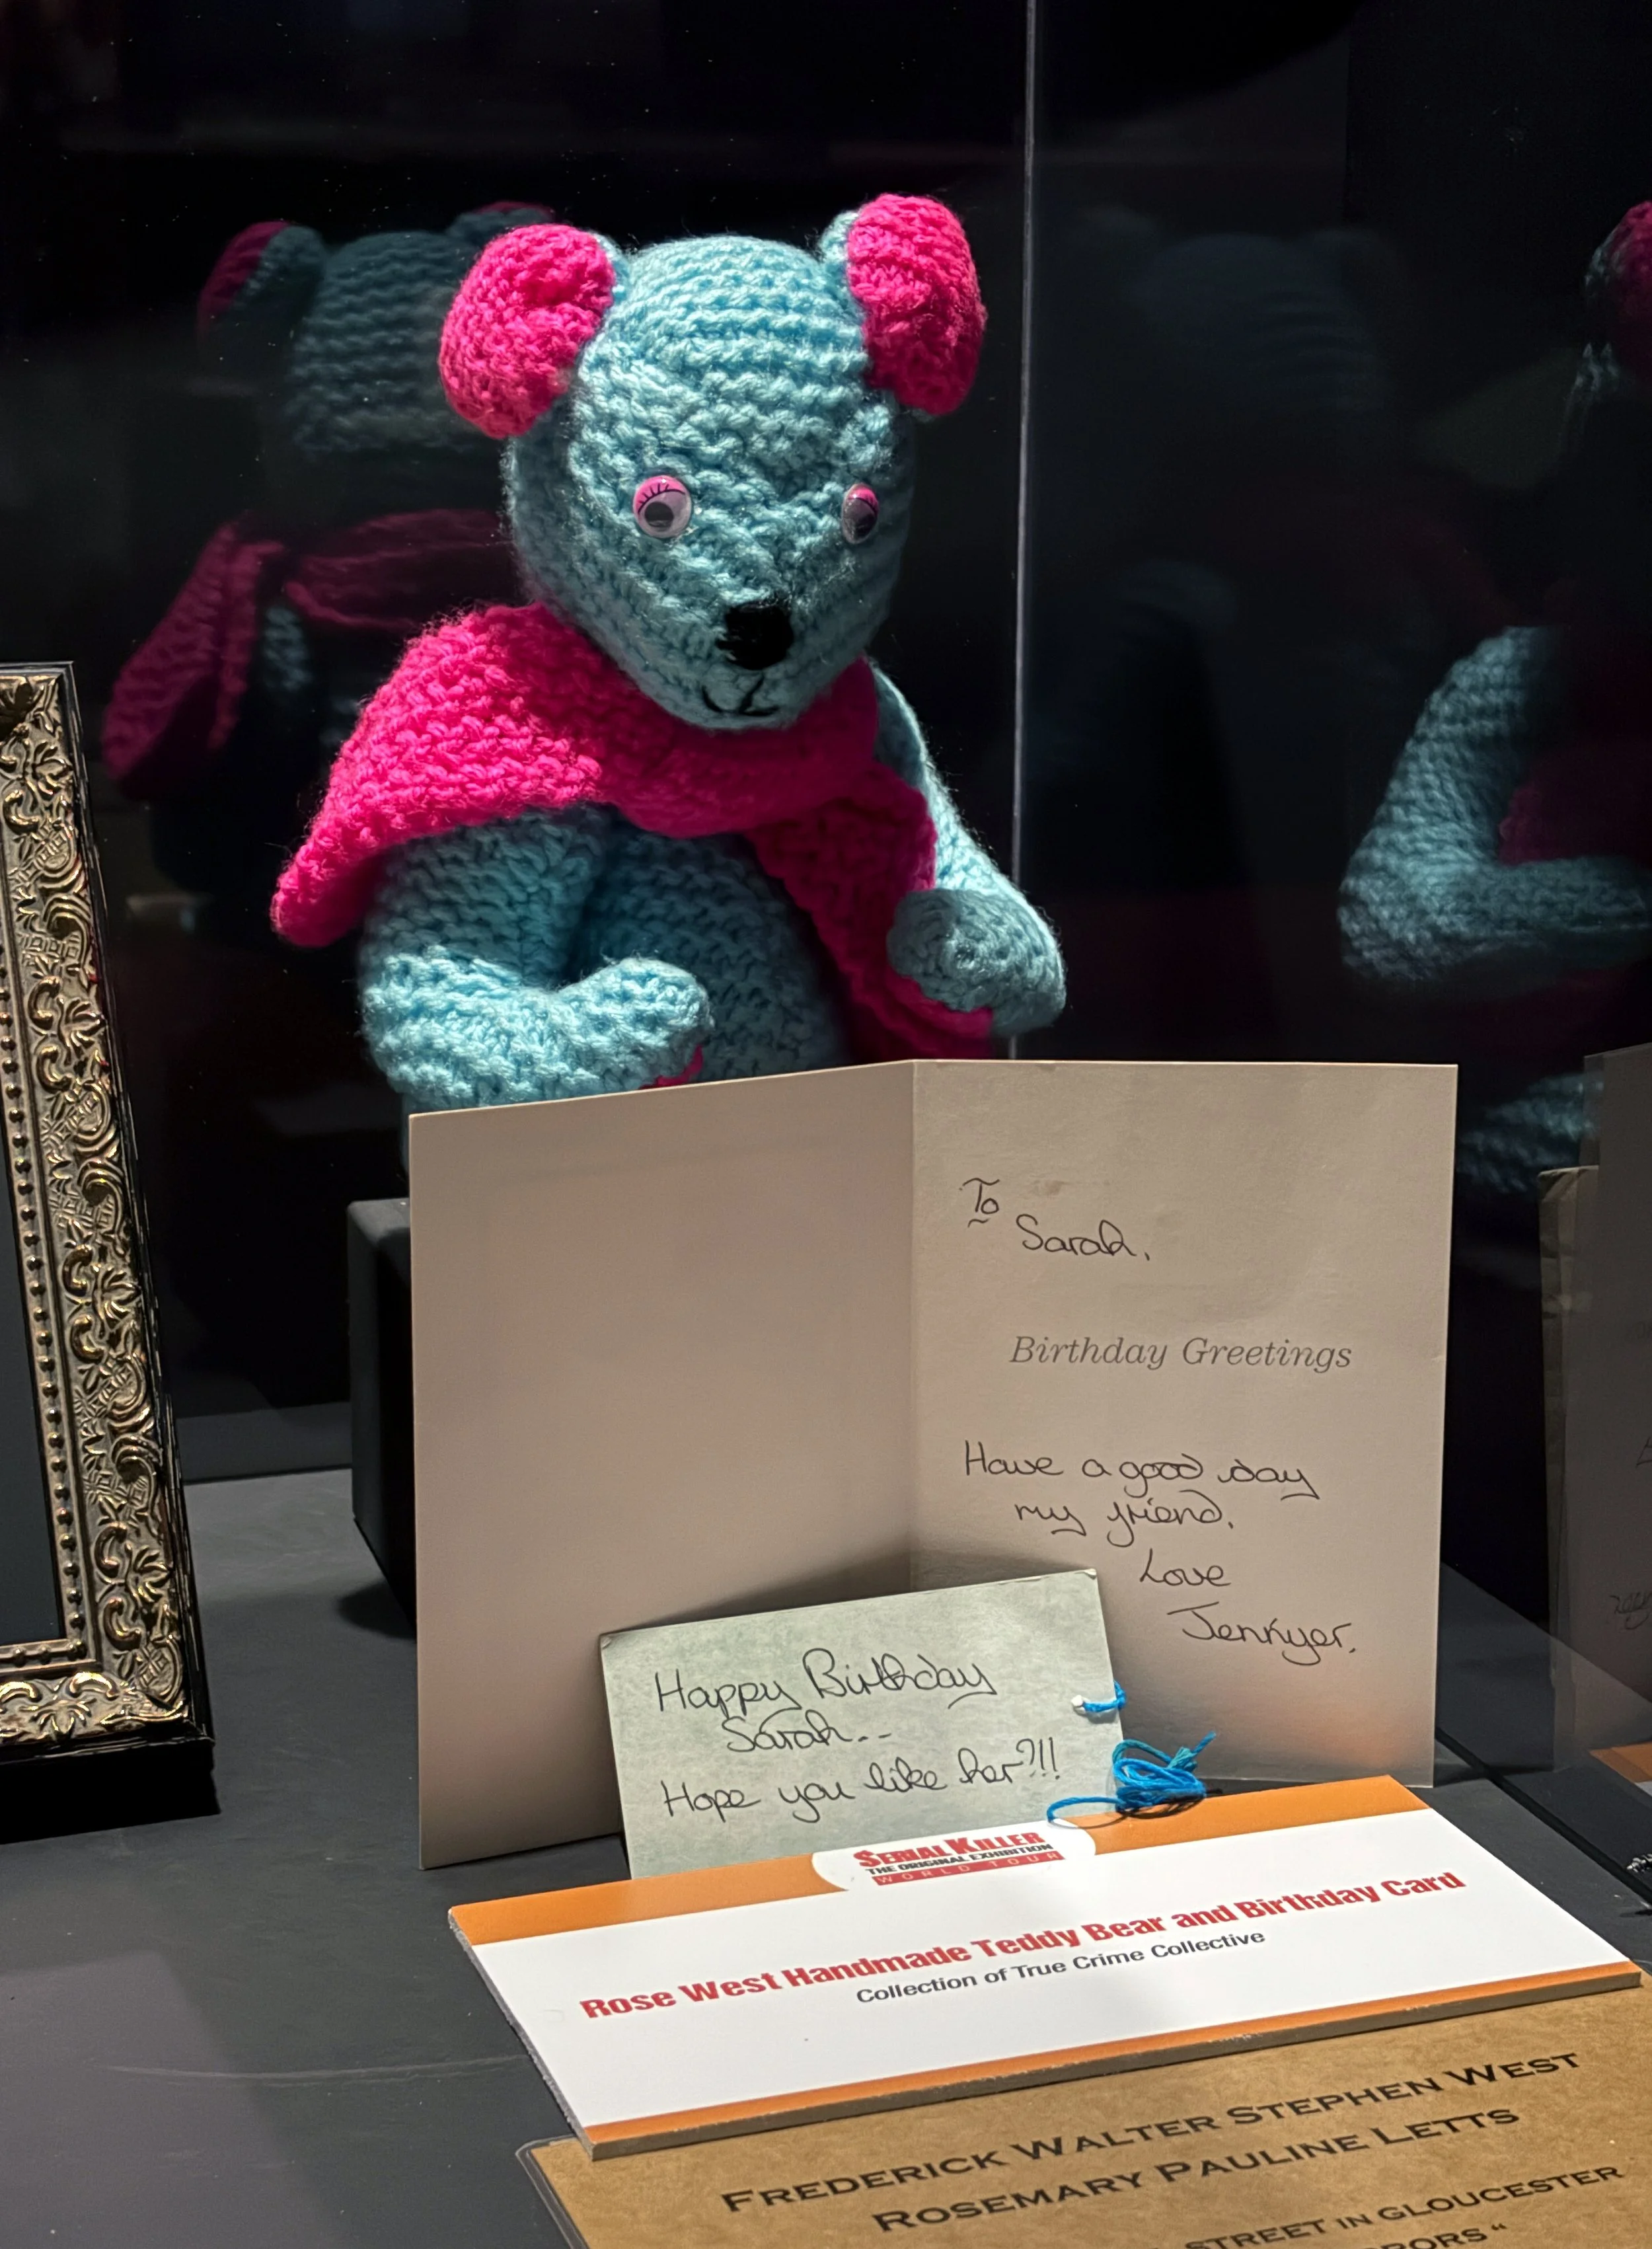 To
Sarah,
Birthday Greetings
Have a good day
my friend.
Love
Jennyer.
Happy Birthday
Sarah..
Hope you like her?!!
SERIAL KILLER
THE ORIGINAL EXHIBITION
WORLD TOUR
Rose West Handmade Teddy Bear and Birthday Card
Collection of True Crime Collective
FREDERICK WALTER STEPHEN WEST
ROSEMARY PAULINE LETTS
STREET IN GLOUCESTER